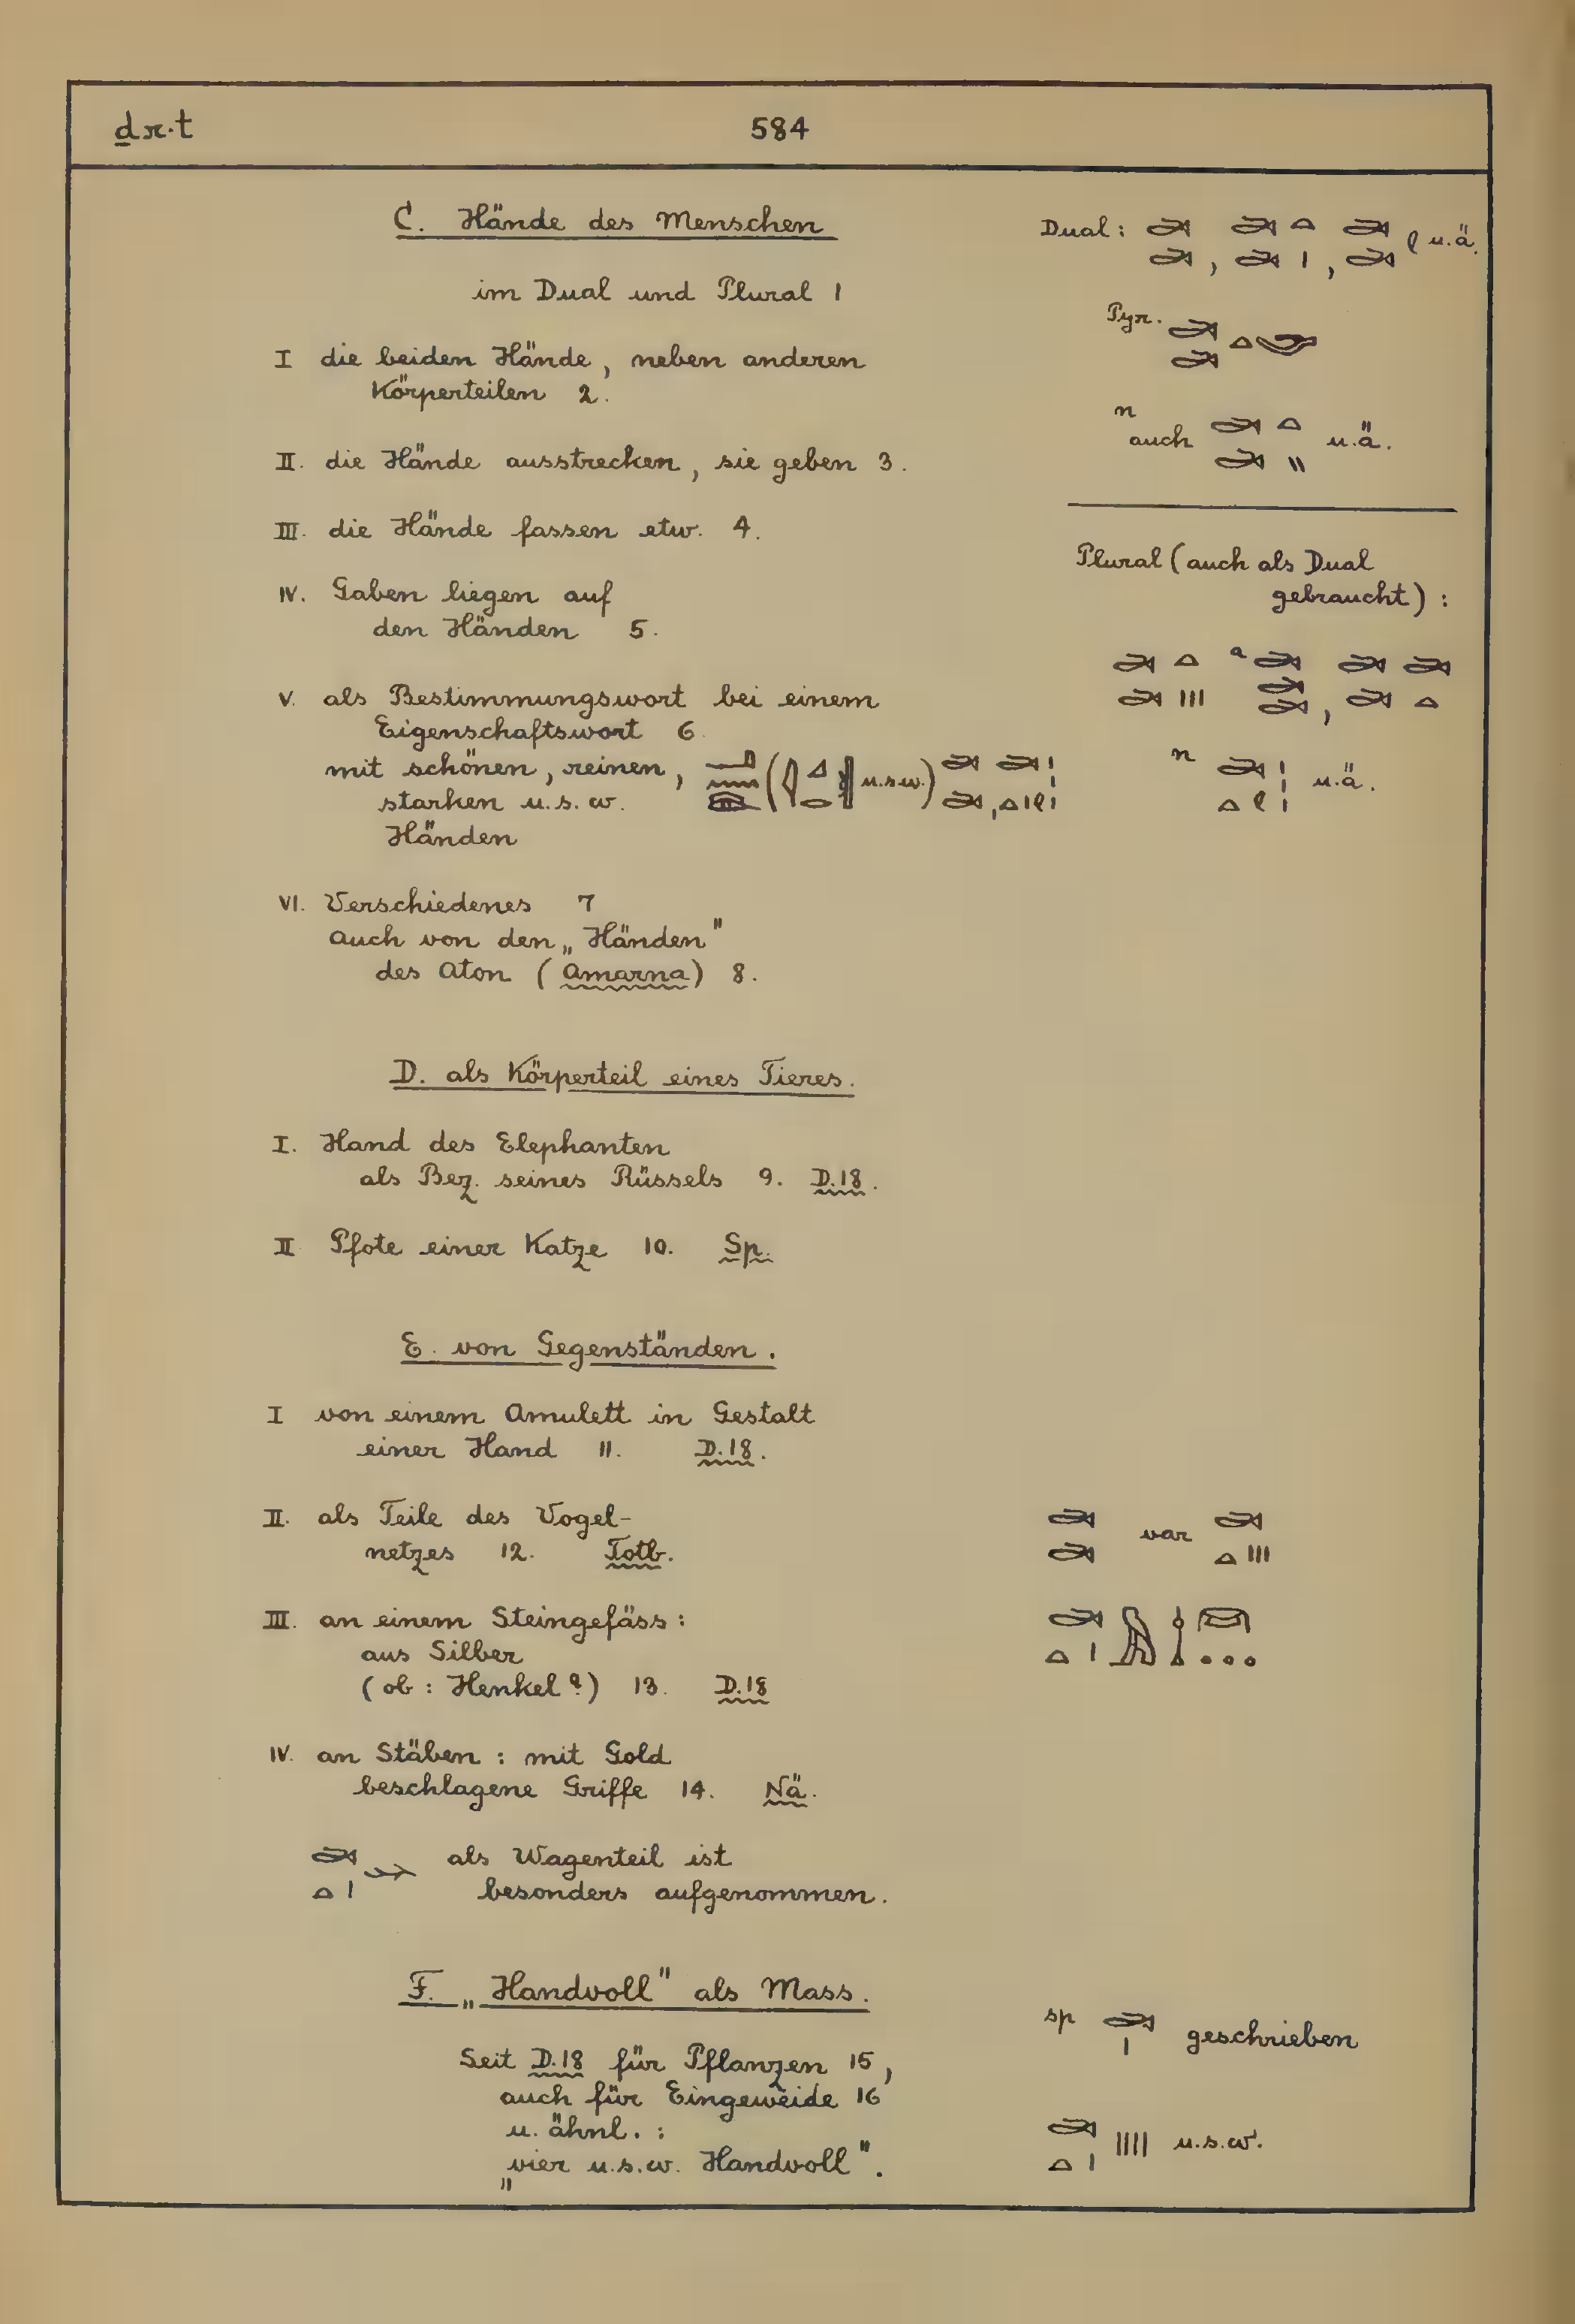 ḏr.t
584
C. Hände des Menschen
im Dual und Plural 1
I die beiden Hände, neben anderen
Körperteilen 2.
II. die Hände ausstrecken, sie geben 3.
III. die Hände fassen etw. 4.
IV. Gaben liegen auf
den Händen 5.
V. als Bestimmungswort bei einem
Eigenschaftswort 6.
mit schönen, reinen, ( u.s.w.)
starken u.s.w.
Händen
VI. Verschiedenes 7
auch von den „Händen"
des Aton (Amarna) 8.
Dual: u.ä.
Pyr.
n
auch u.ä.
Plural (auch als Dual
gebraucht):
a
n u.ä.
D. als Körperteil eines Tieres.
I. Hand des Elephanten
als Bez. seines Rüssels 9. D.18.
II Pfote einer Katze 10. Sp.
E. von Gegenständen.
I von einem Amulett in Gestalt
einer Hand 11. D.18.
II. als Teile des Vogel-
netzes 12. Totb.
var
III. an einem Steingefäss:
aus Silber
(ob: Henkel?) 13. D.18
IV. an Stäben: mit Gold
beschlagene Griffe 14. Nä.
als Wagenteil ist
besonders aufgenommen.
F. „Handvoll" als Mass.
Seit D.18 für Pflanzen 15,
auch für Eingeweide 16
u. ähnl.:
„vier u.s.w. Handvoll".
sp geschrieben
u.s.w.